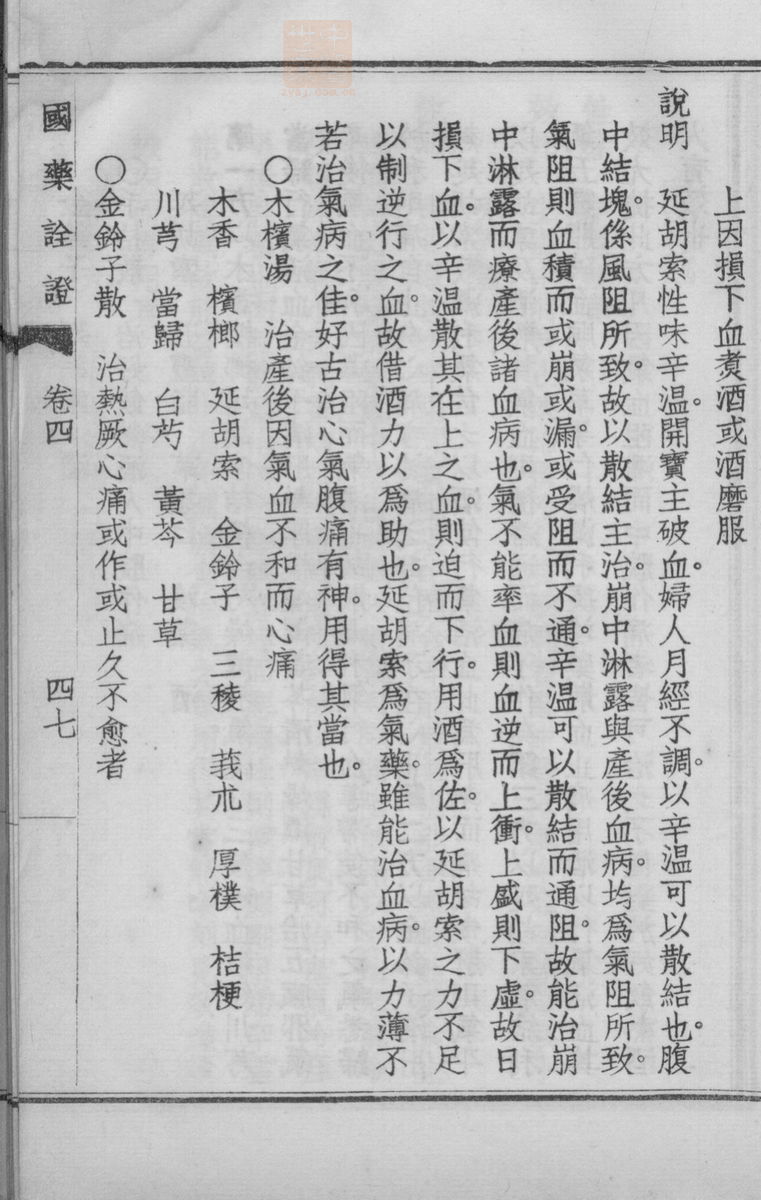 上因損下血煮酒或酒磨服
說明　延胡索性味辛温。開寶主破血。婦人月經不調。以辛温可以散結也。腹
中結塊。係風阻所致。故以散結主治。崩中淋露與產後血病。均爲氣阻所致。
氣阻則血積而或崩或漏。或受阻而不通。辛温可以散結而通阻。故能治崩
中淋露而療產後諸血病也。氣不能率血則血逆而上衝。上盛則下虛。故曰
損下血。以辛温散其在上之血。則迫而下行。用酒爲佐。以延胡索之力不足
以制逆行之血。故借酒力以爲助也。延胡索爲氣藥。雖能治血病。以力薄不
若治氣病之佳。好古治心氣腹痛有神。用得其當也。
〇木檳湯　治產後因氣血不和而心痛
木香　檳榔　延胡索　金鈴子　三稜　莪朮　厚樸　桔梗
川芎　當歸　白芍　黃芩　甘草
〇金鈴子散　治熱厥心痛或作或止久不愈者
國藥詮證　卷四　四七